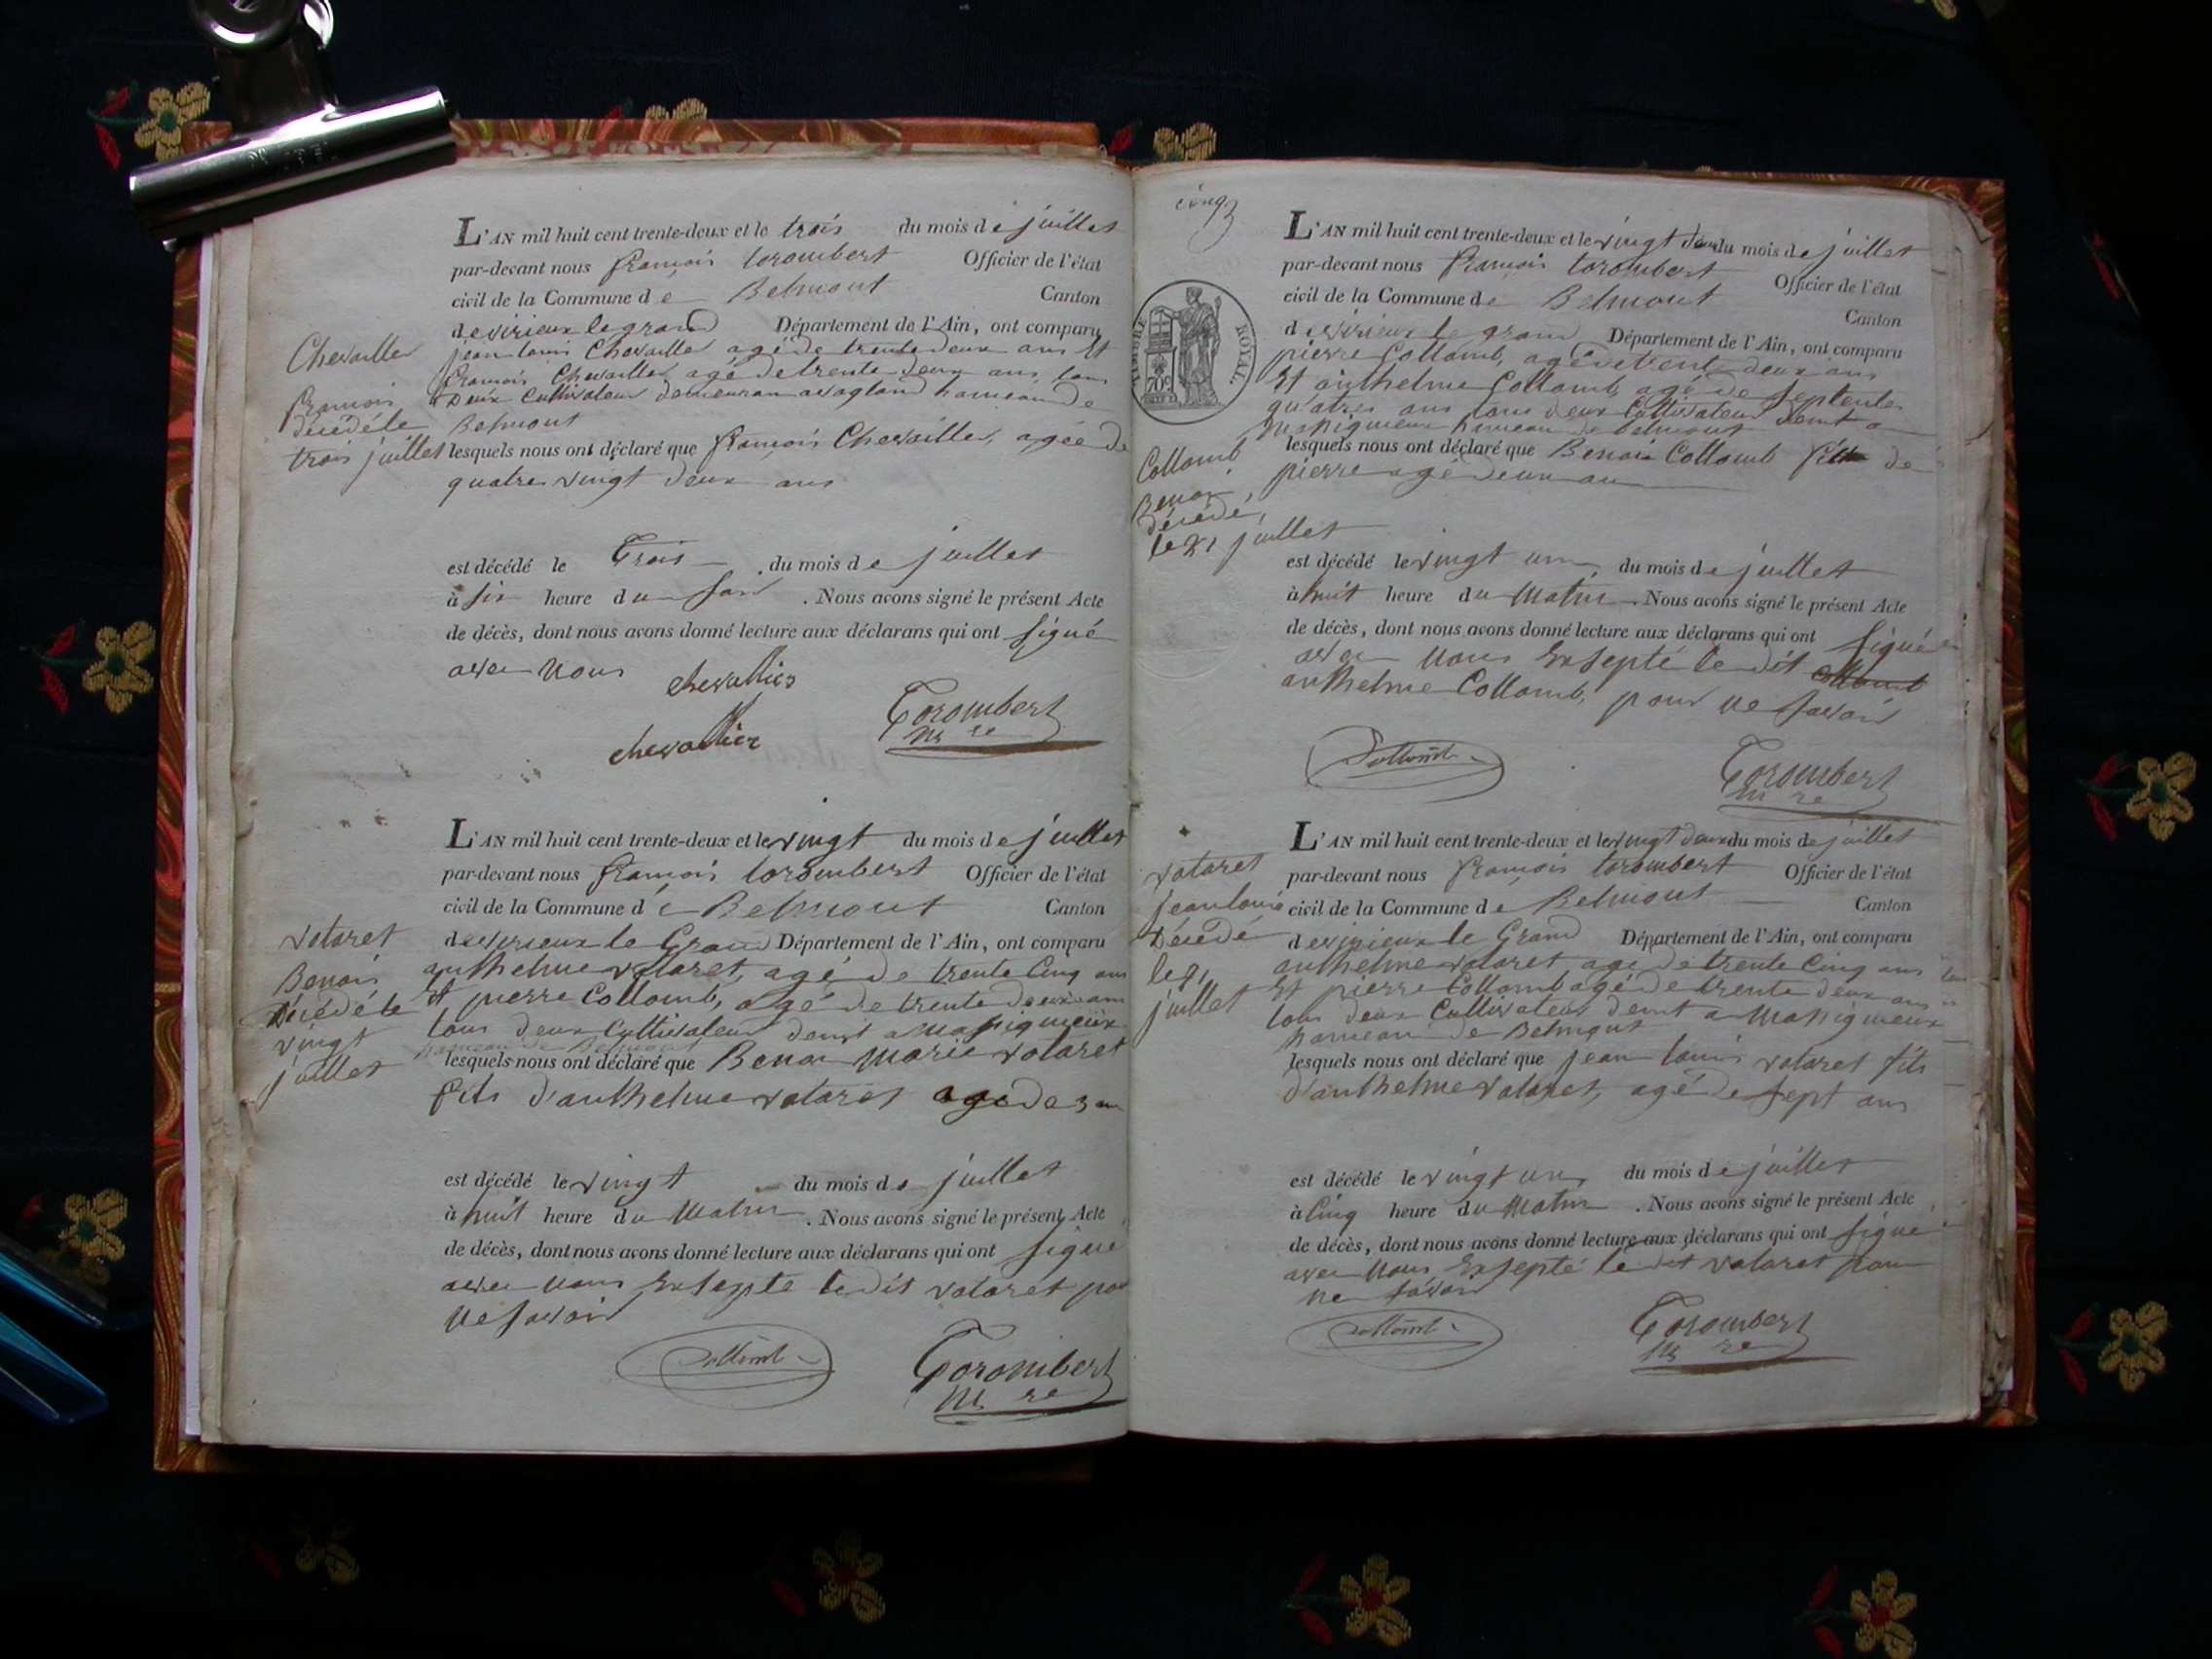 L'AN mil huit cent trente-deux et le trois du mois de juillet
par-devant nous françois torombert Officier de l'état
civil de la Commune de Belmont Canton
de virieux le grand Département de l'Ain, ont comparu
jean louis Chevallier agé de trente deux ans Et
françois Chevallier agé de trente deux ans tous
Deux Cultivateur demeuran a vogland hameau de
Belmont
lesquels nous ont déclaré que françois Chevallier, agée de
quatre vingt deux ans
Chevallier
françois
décédé le
trois juillet
est décédé le Trois du mois de juillet
à six heure du soir . Nous avons signé le présent Acte
de décès, dont nous avons donné lecture aux déclarans qui ont signé
avec nous
chevallier
chevallier
Torombert
m re
L'AN mil huit cent trente-deux et le vingt du mois de juillet
par-devant nous françois torombert Officier de l'état
civil de la Commune de Belmont Canton
de virieux le Grand Département de l'Ain, ont comparu
anthelme votaret, agé de trente Cinq ans
Et pierre Collomb, agé de trente deux ans
tous deux Cultivateur demt a Massigneux
hameau de Belmont
lesquels nous ont déclaré que Benoi Marie votaret
fils d'anthelme votaret agé de 3 an
votaret
Benoi
Décédé le
vingt
juillet
est décédé le vingt du mois de juillet
à huit heure du Matin . Nous avons signé le présent Acte
de décès, dont nous avons donné lecture aux déclarans qui ont signé
avec nous Exsepté ledit votaret pour
ne savoir
Collomb
Torombert
m re
cinq
TIMBRE ROYAL
70c
L'AN mil huit cent trente-deux et le vingt deux du mois de juillet
par-devant nous françois torombert Officier de l'état
civil de la Commune de Belmont Canton
de virieux le grand Département de l'Ain, ont comparu
pierre Collomb, agé de trente deux ans
Et anthelme Collomb, agé de septente
quatres ans tous deux Cultivateur demt a
Massigneux hameau de belmont
lesquels nous ont déclaré que Benoi Collomb fils de
pierre agé deux an
Collomb
Benoi
décédé,
le 21 juillet
est décédé le vingt un du mois de juillet
à huit heure du Matin . Nous avons signé le présent Acte
de décès, dont nous avons donné lecture aux déclarans qui ont signé
avec nous Exsepté ledit Collomb
anthelme Collomb, pour ne savoir
Collomb
Torombert
m re
L'AN mil huit cent trente-deux et le vingt deux du mois de juillet
par-devant nous françois torombert Officier de l'état
civil de la Commune de Belmont Canton
de virieux le Grand Département de l'Ain, ont comparu
anthelme votaret agé de trente Cinq ans
Et pierre Collomb agé de trente deux ans
tous deux Cultivateur demt a Massigneux
hameau de Belmont
lesquels nous ont déclaré que jean louis votaret fils
d'anthelme votaret, agé de sept ans
votaret
jean louis
Décédé
le 21
juillet
est décédé le vingt un du mois de juillet
à Cinq heure du Matin . Nous avons signé le présent Acte
de décès, dont nous avons donné lecture aux déclarans qui ont signé
avec nous Exsepté ledit votaret pour
ne savoir
Collomb
Torombert
m re